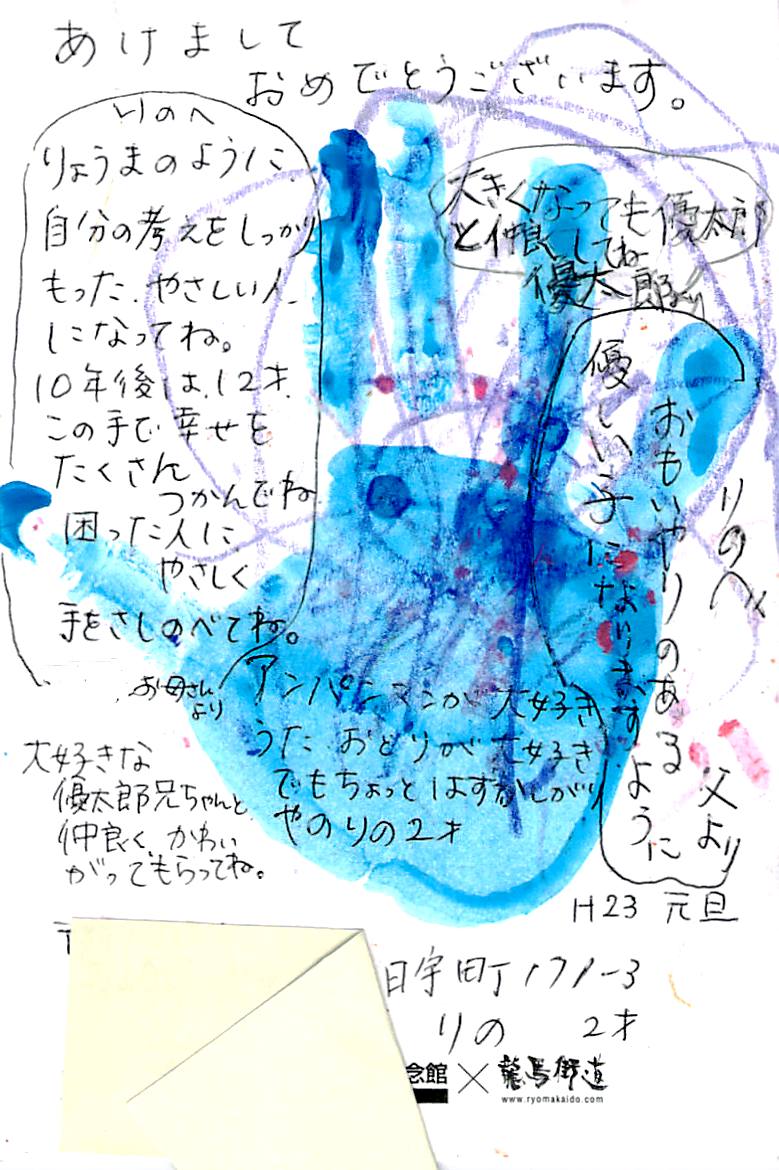 あけまして
おめでとうございます。
りのへ
りょうまのように、
自分の考えをしっかり
もった、やさしい人、
になってね。
10年後は、12才、
この手で幸せを
たくさん
つかんでね
困った人に
やさしく
手をさしのべてね。
お母さん
より
大きくなっても優太郎
と仲良くしてね
優太郎より
りのへ
おもいやりのある
優しい子になりますように
父より
アンパンマンが大好き
うた おどりが大好き
でもちょっとはずかしがり
やのりの2才
大好きな
優太郎兄ちゃんと
仲良く、かわい
がってもらってね。
H23 元旦
日宇町171-3
りの 2才
念館×龍馬街道
www.ryomakaido.com